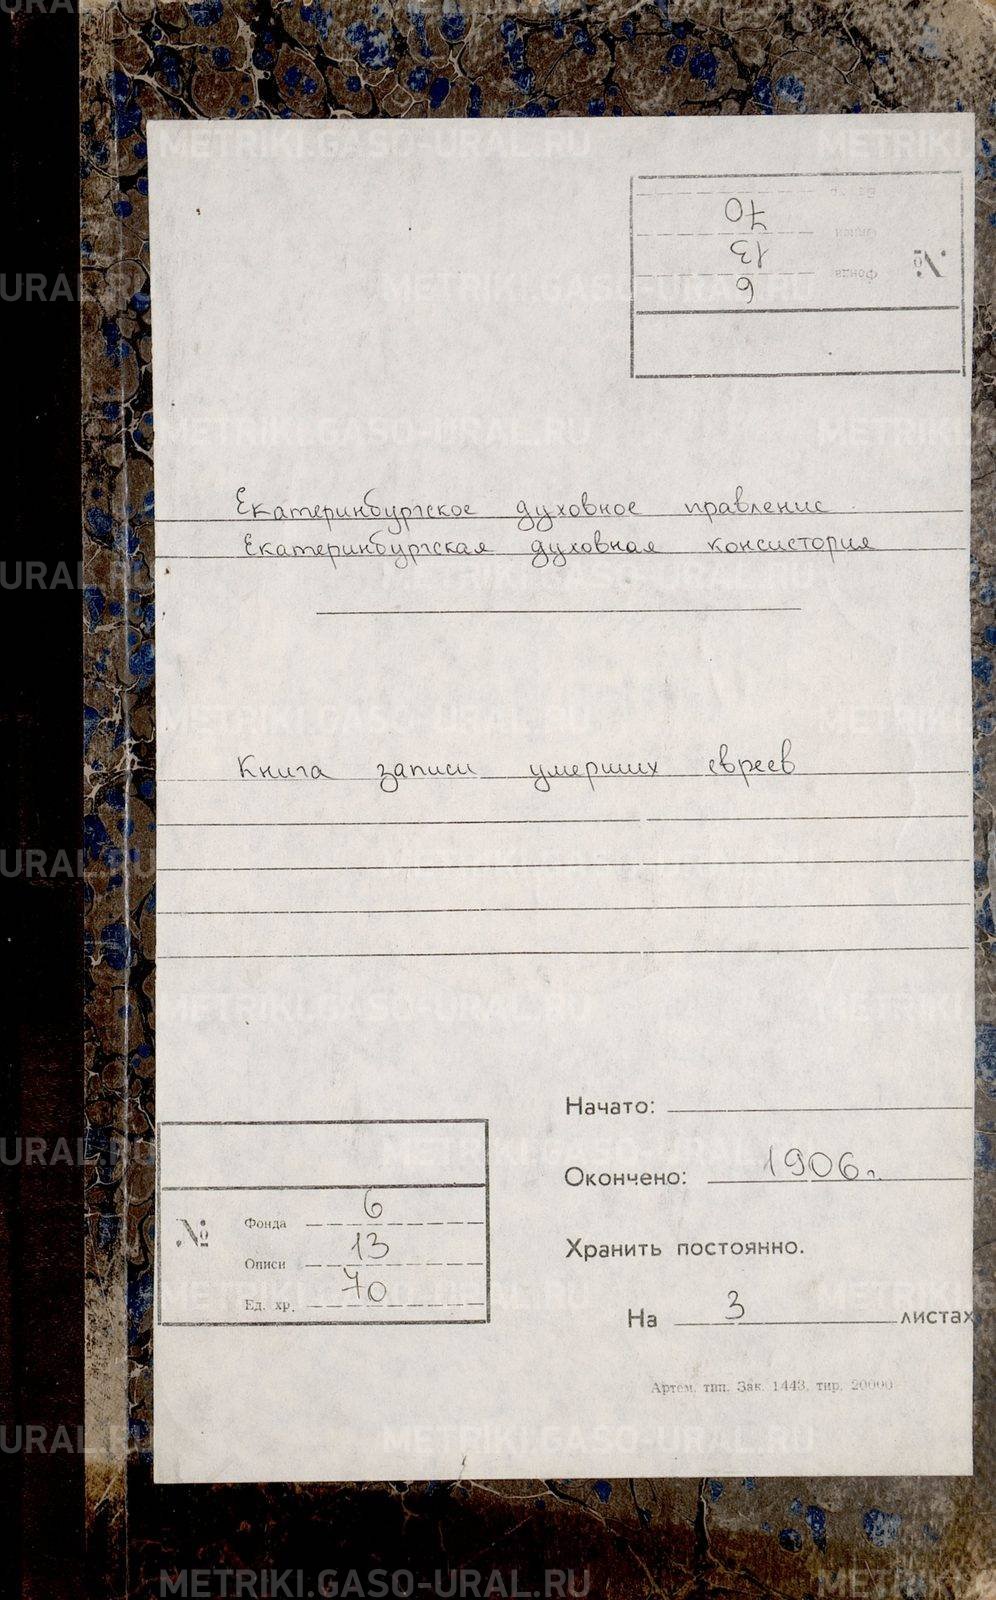 Ед. хр. 70
Описи 13
№ Фонда 6
Екатеринбургское духовное правление.
Екатеринбургская духовная консистория
Книга записи умерших евреев
Начато:
Окончено: 1906 г.
Хранить постоянно.
На 3 листах
№
Фонда 6
Описи 13
Ед. хр. 70
Артем. тип. Зак. 1443, тир. 20000
METRIKI.GASO-URAL.RU